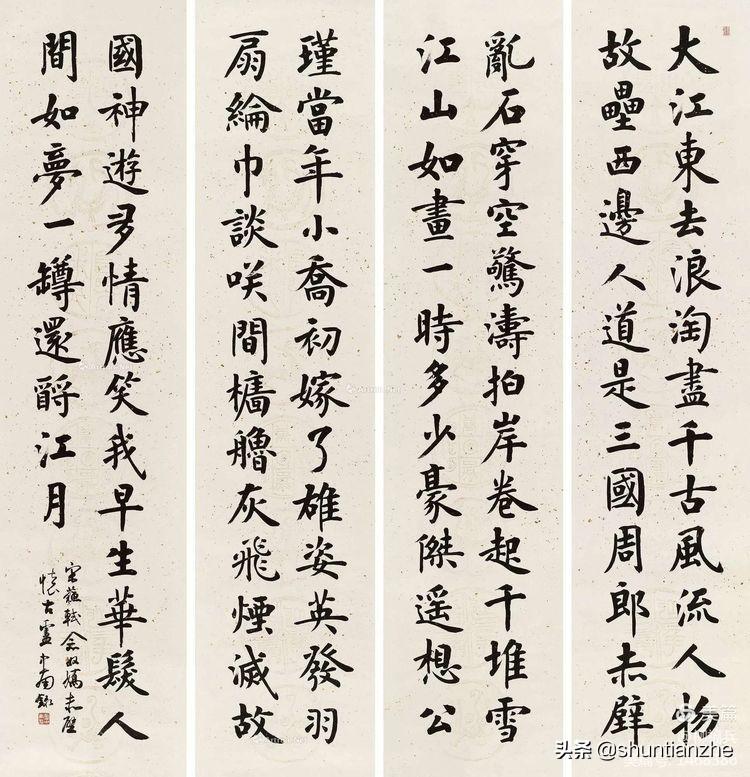 大江東去浪淘盡千古風流人物
故壘西邊人道是三國周郎赤壁
亂石穿空驚濤拍岸卷起千堆雪
江山如畫一時多少豪傑遥想公
瑾當年小喬初嫁了雄姿英發羽
扇綸巾談咲間檣艪灰飛煙滅故
國神遊多情應笑我早生華髮人
間如夢一罇還酹江月
宋蘇軾念奴嬌赤壁
懷古盧中南錄
美篇
头条 @shuntianzhe